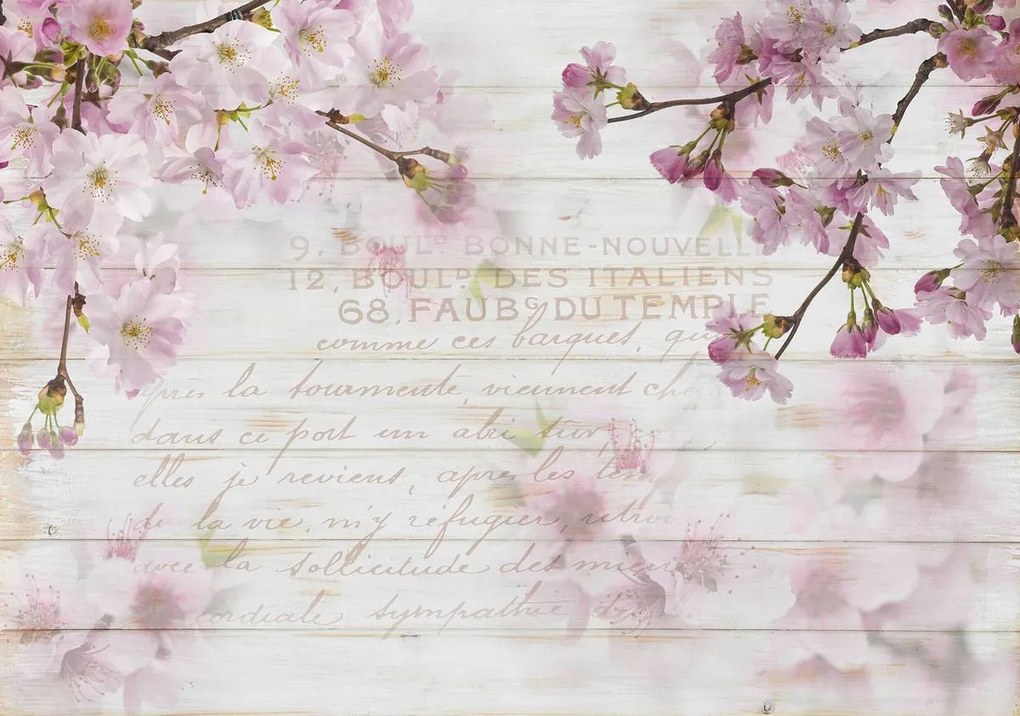 9, BOULD. BONNE-NOUVELL
12, BOULD. DES ITALIENS
68, FAUBG. DU TEMPLE
comme ces barques, qu
après la tourmente, viennent che
dans ce port un abri sûr,
elles je reviens, après les tem
de la vie, m'y réfugier, retrou
avec la sollicitude des miens
cordiale sympathie d